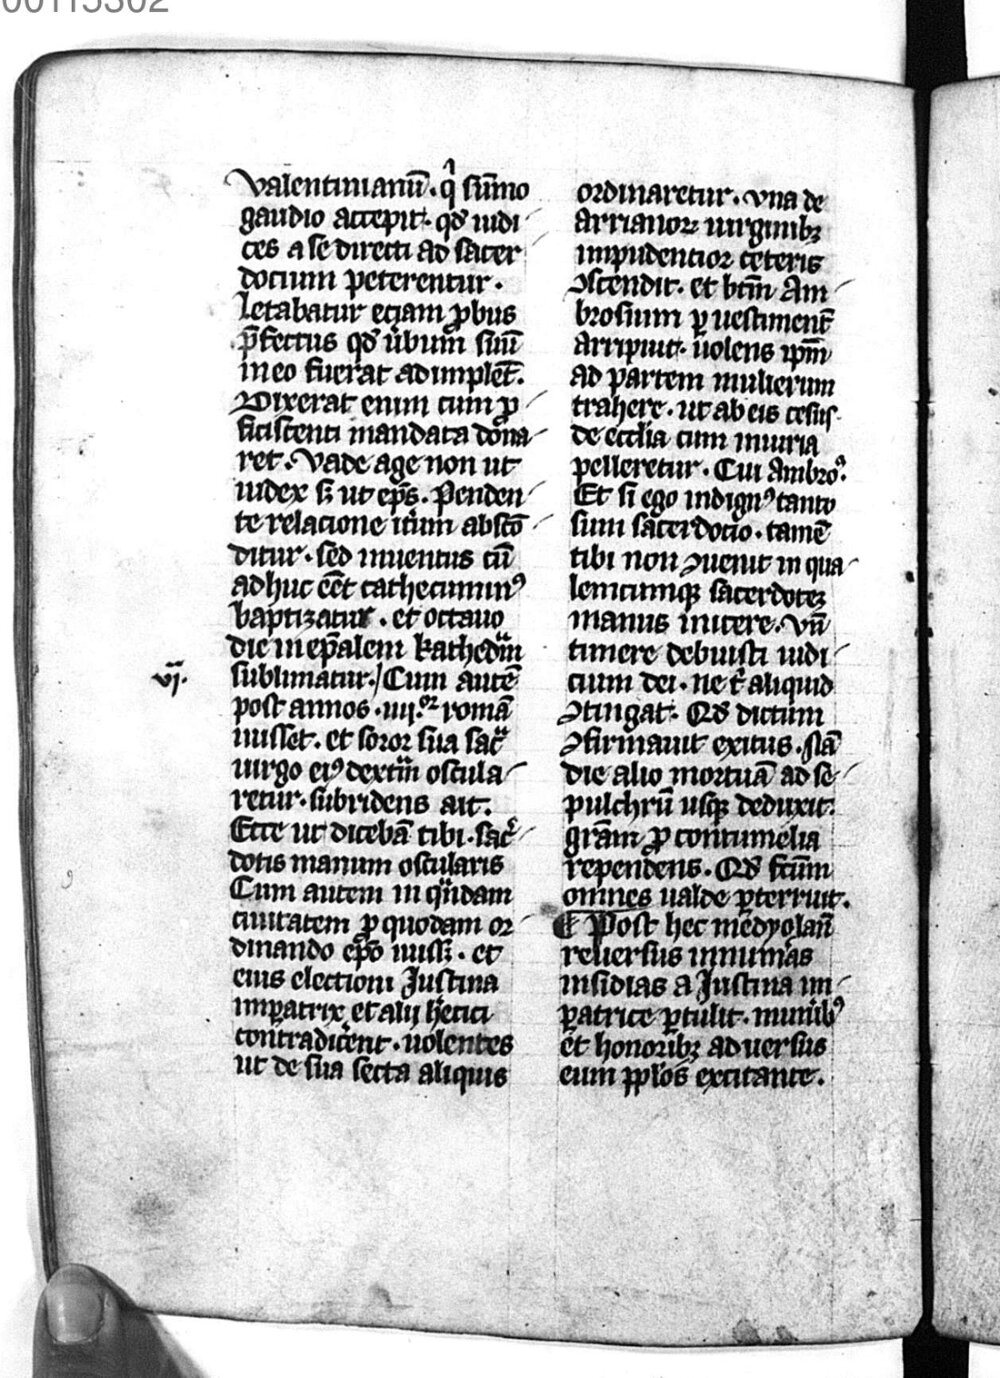 00115302
valentinianū · qͥ sūmo
gaudio accepit · qd̕ iudi
ces a se directi ad sacer
docium peterentur ·
Letabatur eciam ꝓbus
p̄fectus qd̕ u̕bum suū
in eo fuerat adimplet̄ ·
Dixerat enim cum ꝓ
ficiscenti mandata dōna
ret · Vade age non ut
iudex sꝫ ut ep̄s · Penden
te relacione it̕um abscō
ditur · sed inuentus cū
adhuc eēt cathecuminꝰ
baptizatur · et octauo
die in ep̄alem kathedͣm
sublimatur · Cum autē
vj ·
post annos · iiij · oꝛ romā
iuisset · et soror sua sacͣ
uirgo eiꝰ dextͣm oscula
retur · subridens ait ·
Ecce ut dicebā tibi · sac̕
dotis manum oscularis
Cum autem in qͣndam
ciuitatem ꝓ quodam or
dinando ep̄o iuissꝫ · et
eius electioni Justina
imꝑatrix et alij he̕tici
contradice̕nt · uolentes
ut de sua secta aliquis
ordinaretur · vna de
arrianoꝝ uirginibꝫ
impudentior ceteris
ꝯscendit · et btm̄ Am
brosium ꝑ uestiment̄
arripiuit · uolens ip̄m
ad partem mulierum
trahere · ut ab eis cesus
de ecclīa cum iniuria
pelleretur · Cui Ambroꝰ ·
Et si ego indignꝰ tanto
sum sacerdocio · tamē
tibi non ꝯuenit in qua
lemcumqꝫ sacerdotez
manus inicere · Vn̄
timere debuisti iudi
cium dei · ne t̕ aliquid
ꝯtingat · Qd̕ dictum
ꝯfirmauit exitus · Nā
die alio mortuā ad se
pulchrū usqꝫ deduxit ·
grām ꝓ contumelia
rependens · Qd̕ fcūm
omnes ualde ꝑterruit ·
¶ Post hec medyolan̄
reuersus innum̕as
insidias a Justina im
ꝑatrice ꝑtulit · munibꝰ
et honoribꝫ aduersus
eum pp̄los excitante ·